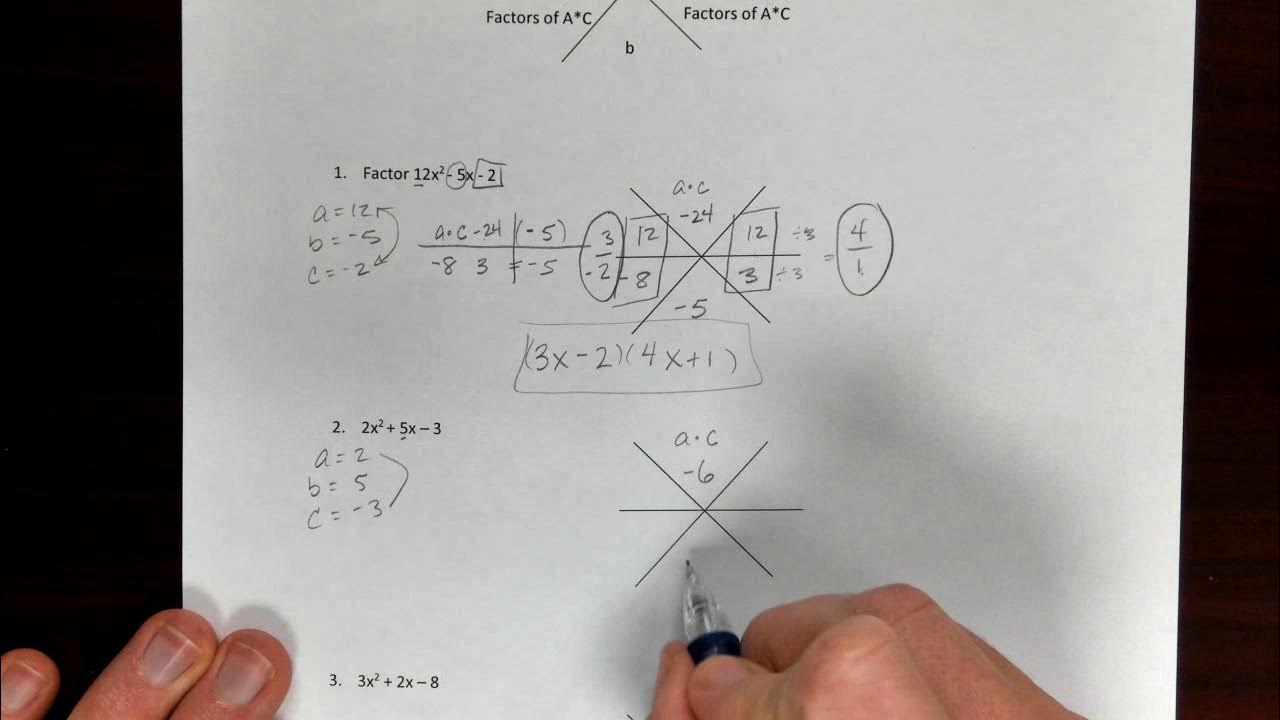 Factors of A*C Factors of A*C
b
1. Factor 12x² - 5x - 2
a = 12
b = -5
c = -2
a·c -24 (-5)
-8 3 = -5
3
-2
a·c
-24
12 12 ÷3
-8 3 ÷3
-5
= 4
1
(3x - 2)(4x + 1)
2. 2x² + 5x – 3
a = 2
b = 5
c = -3
a·c
-6
3. 3x² + 2x – 8